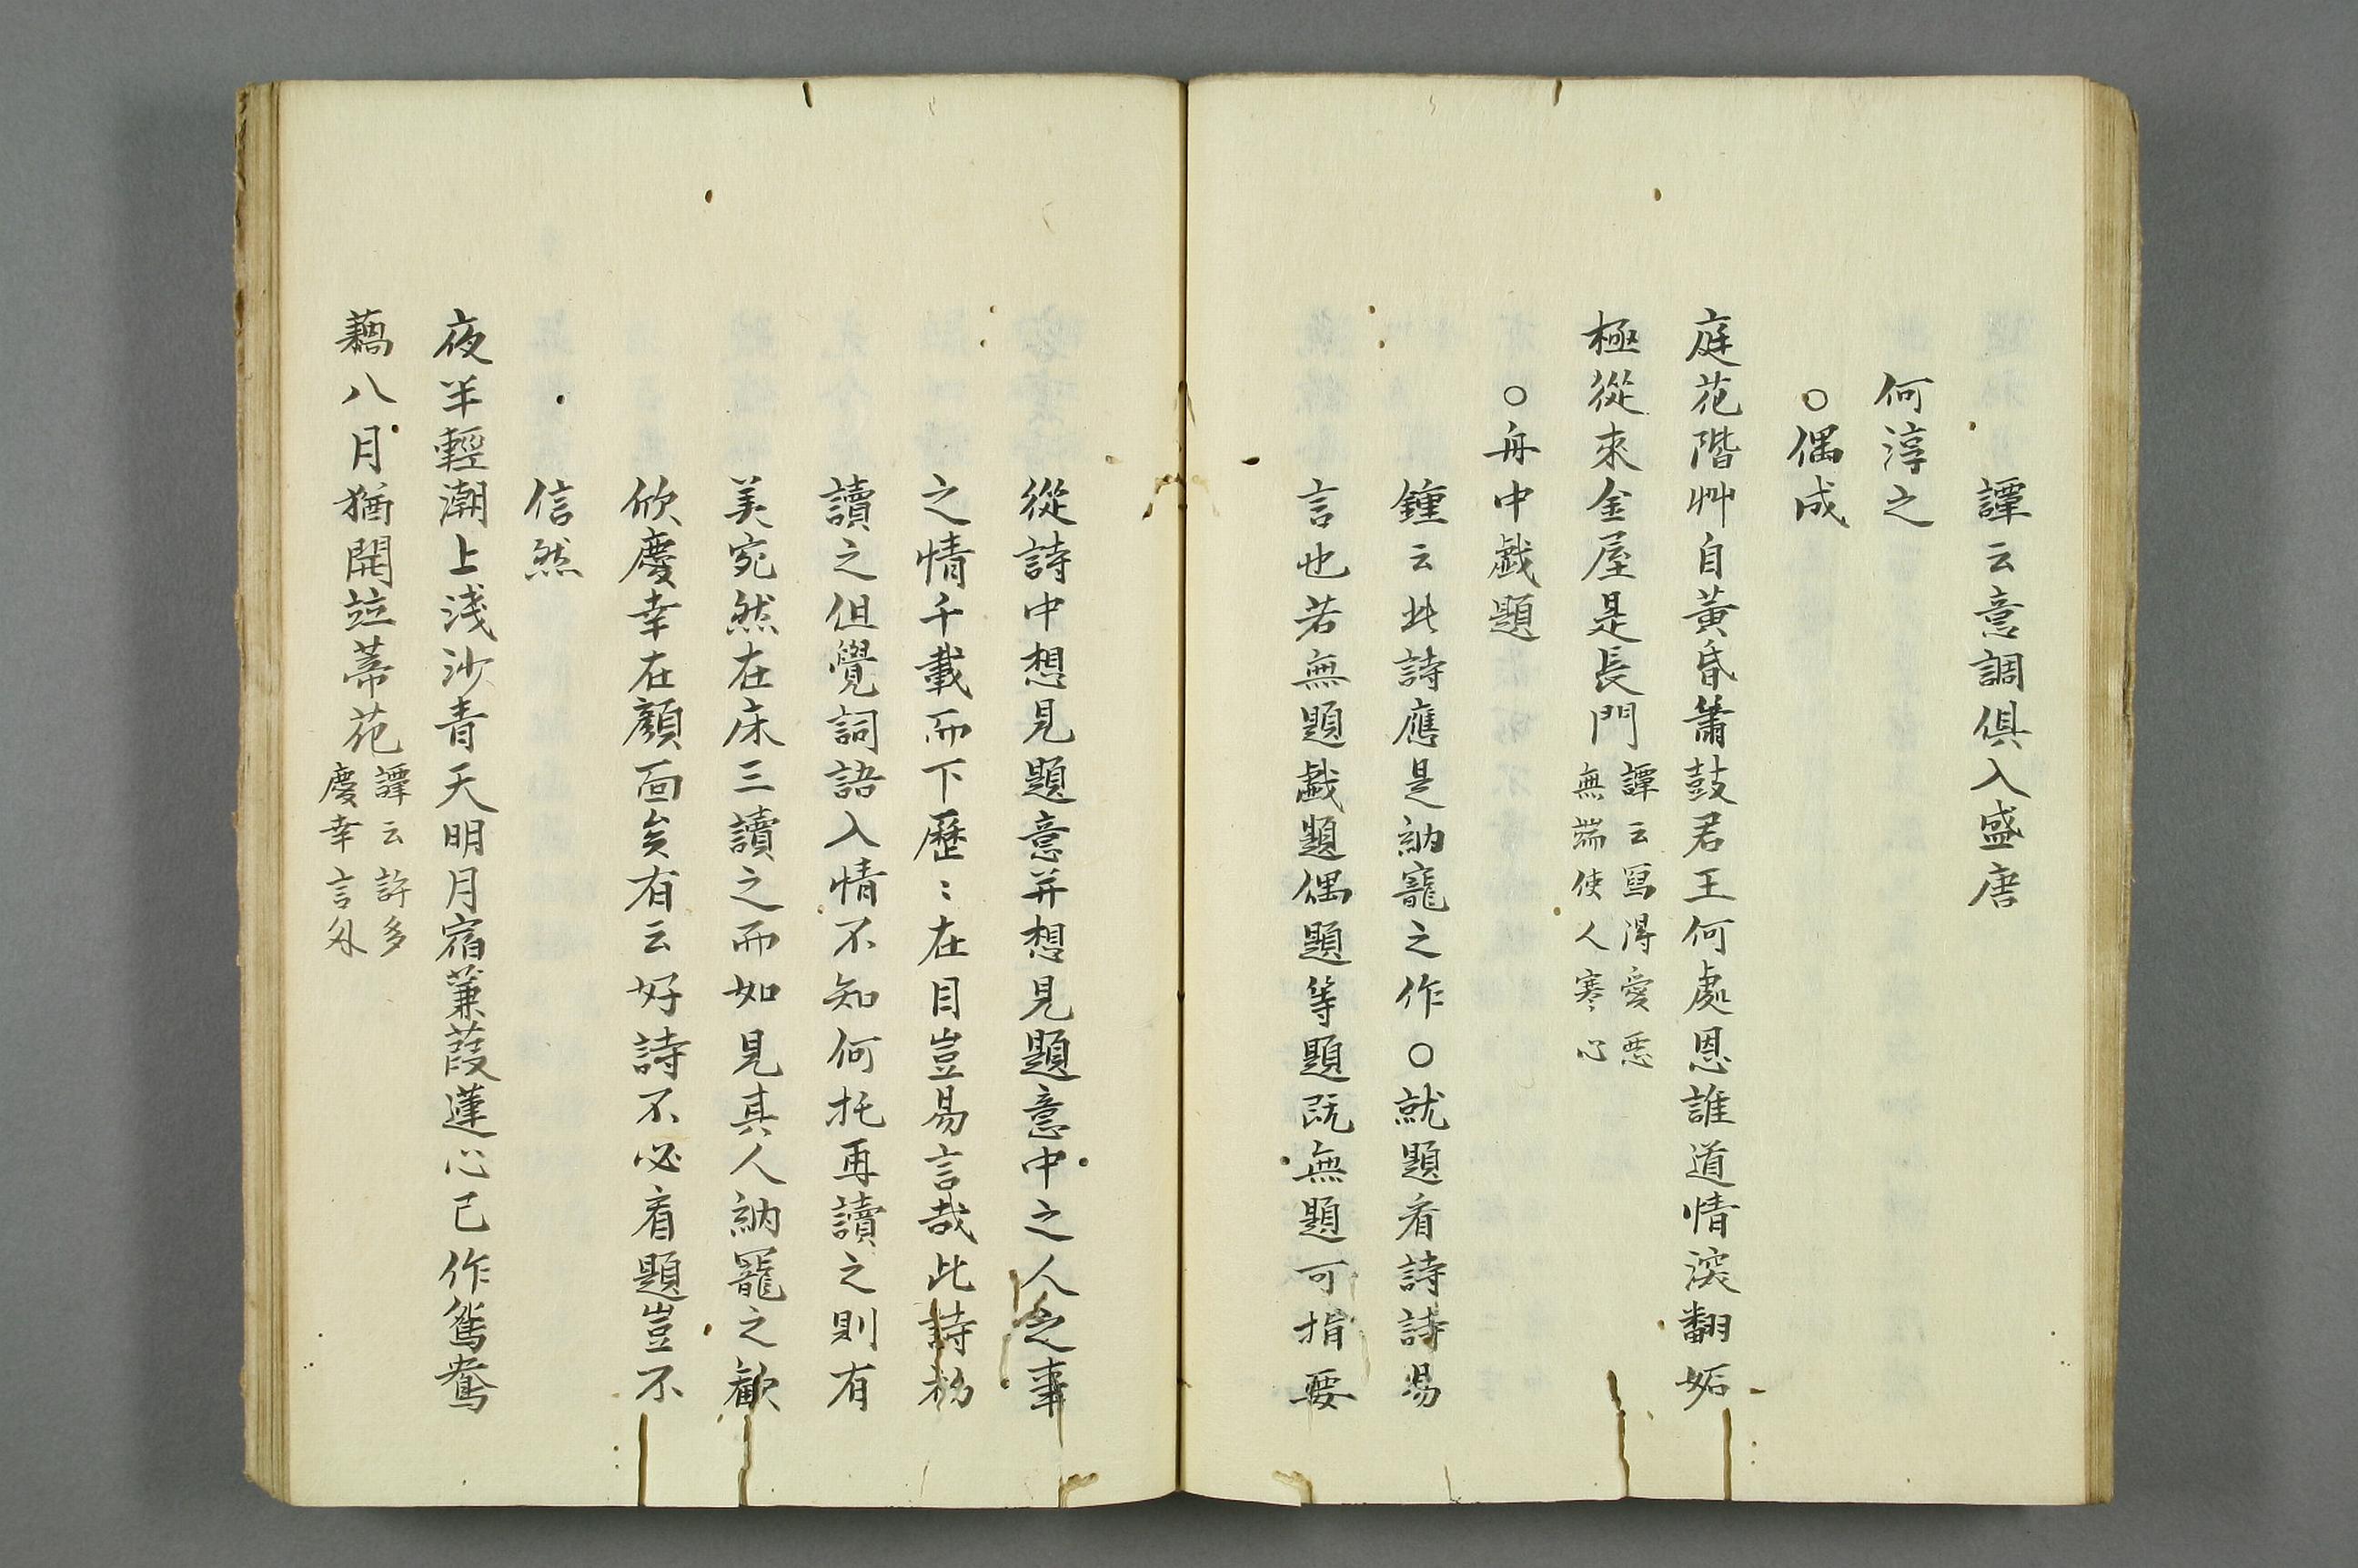 譚云意調俱入盛唐
何淳之
○偶成
庭花階艸自黃昏簫鼓君王何處恩誰道情深翻妬
極從來金屋是長門
譚云寫得愛惡
無端使人寒心
○舟中戱題
鍾云此詩應是納寵之作○就題看詩詩易
言也若無題戱題偶題等題旣無題可指要
從詩中想見題意并想見題意中之人之事
之情千載而下歷〻在目豈易言哉此詩初
讀之但覺詞語入情不知何托再讀之則有
美宛然在床三讀之而如見其人納寵之歡
欣慶幸在顏面矣有云好詩不必看題豈不
信然
夜半輕潮上淺沙青天明月宿蒹葭蓮心已作鴛鴦
藕八月猶開竝蒂花
譚云許多
慶幸言外